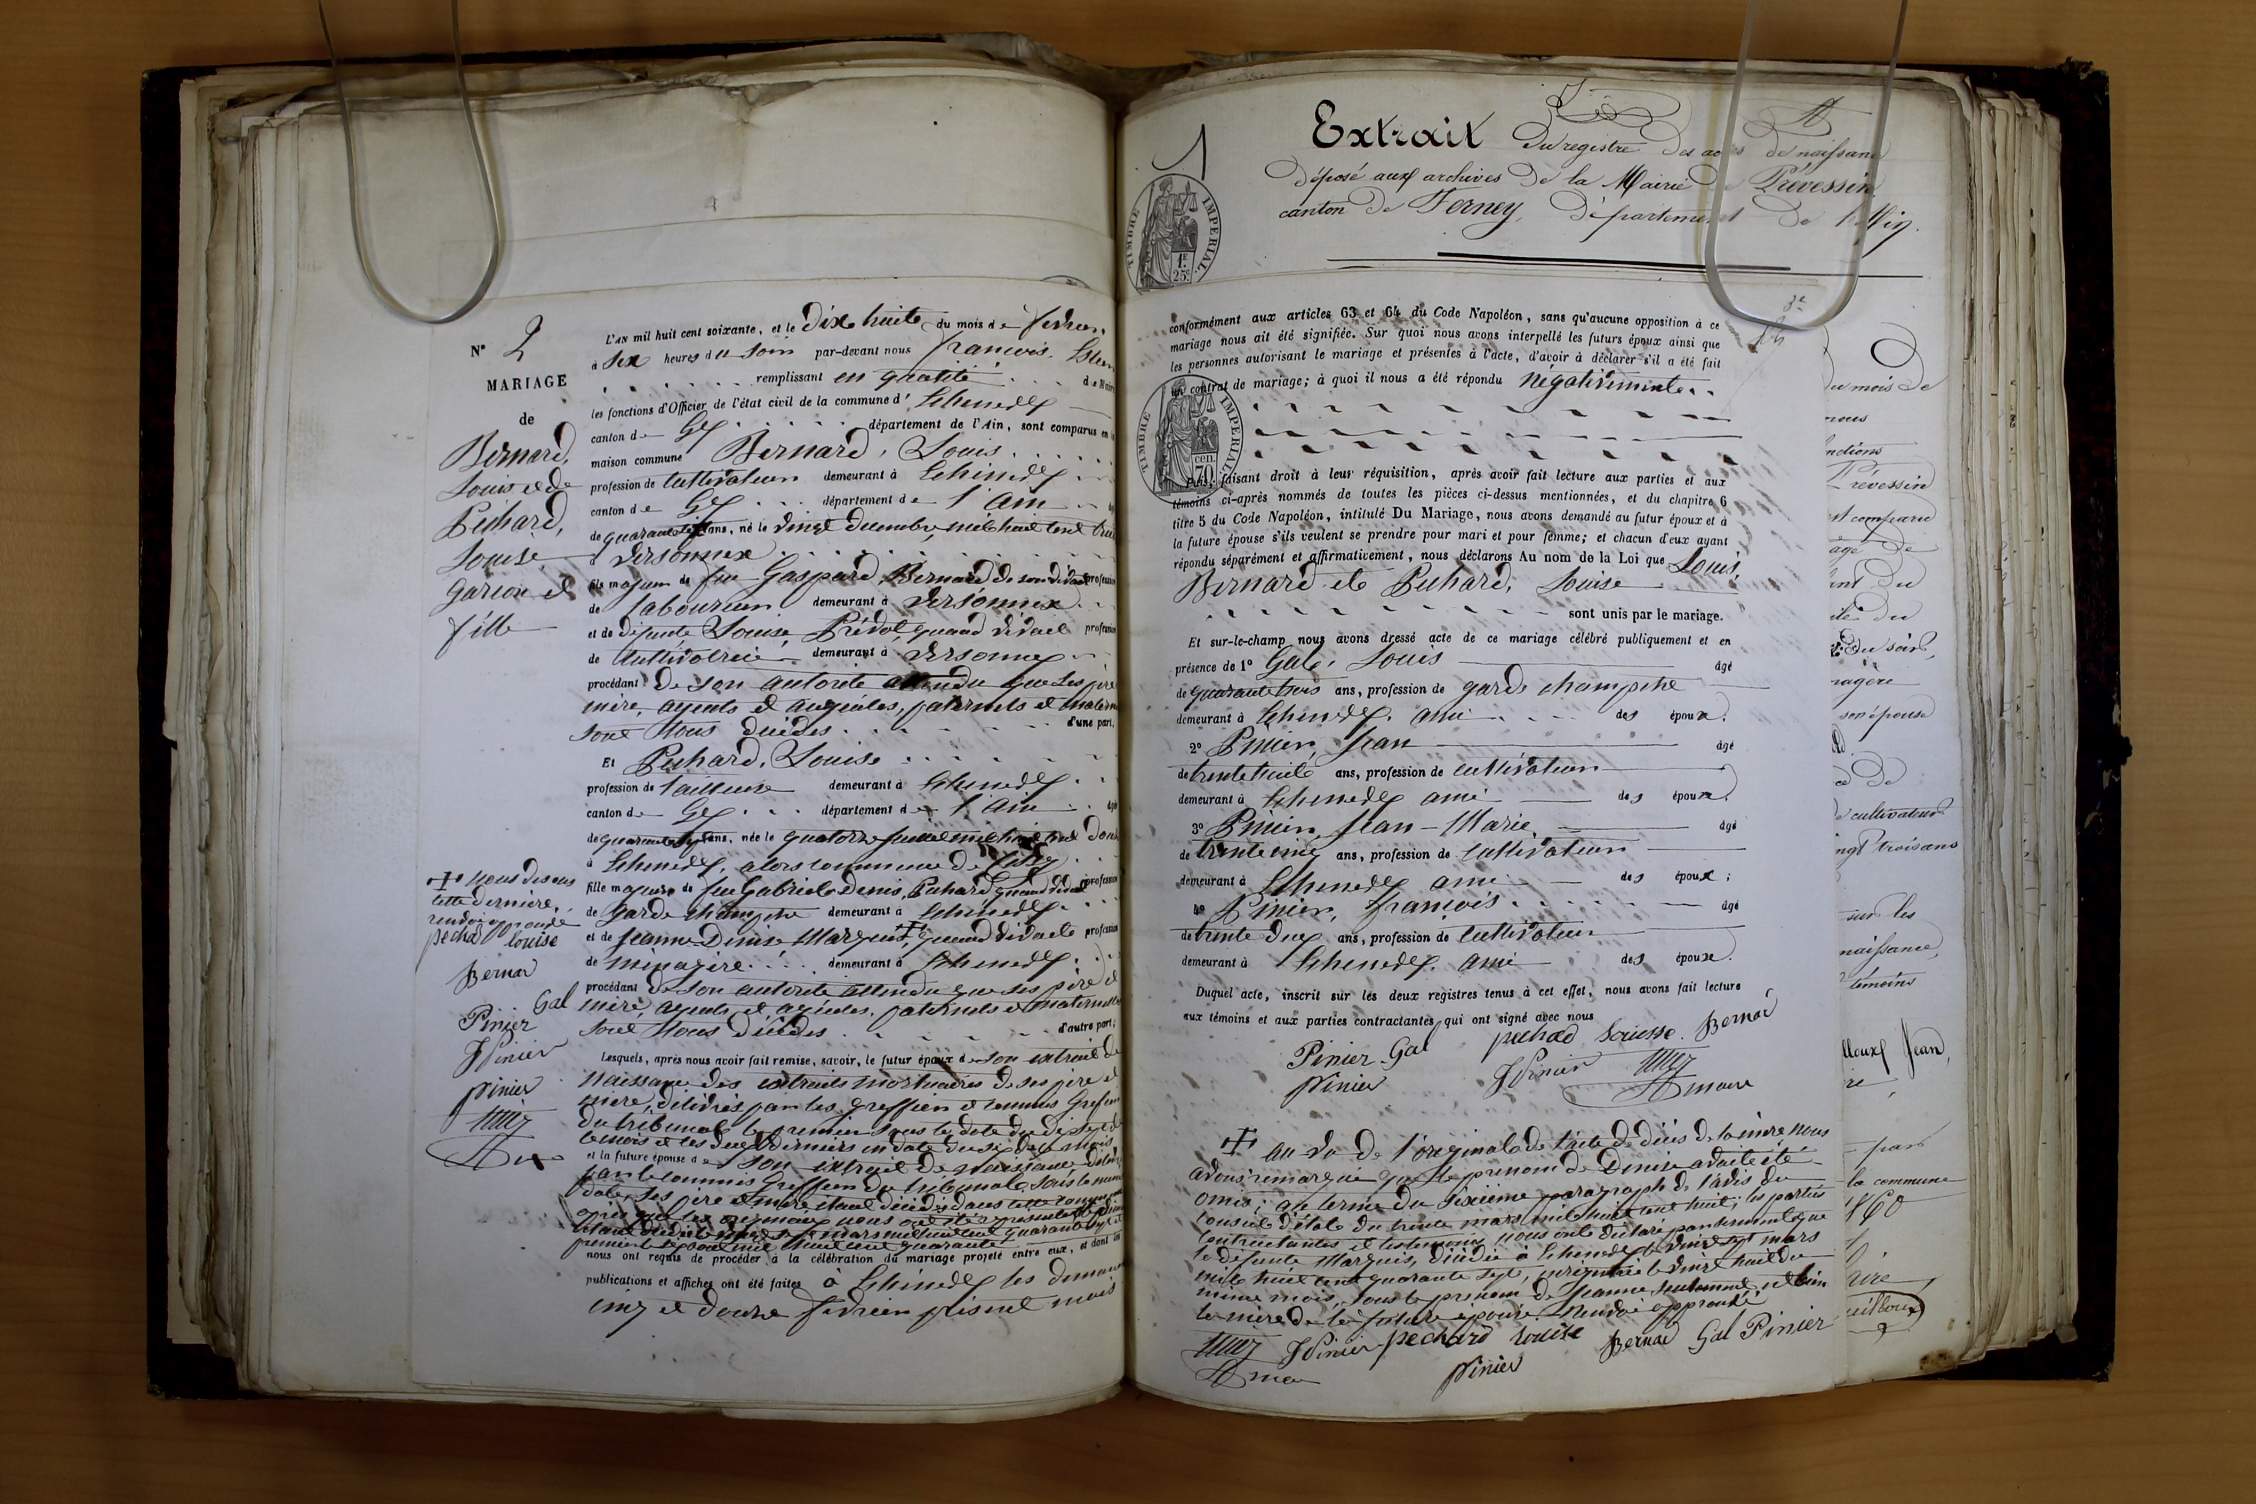 N° 2
MARIAGE
de
Bernard,
Louis et de
Puhard,
Louise,
garcon et
fille
L'AN mil huit cent soixante, et le dix huite du mois de fevrier
à six heures du soir par-devant nous francois.
remplissant en qualité de
les fonctions d'Officier de l'état civil de la commune d' Echenevex
canton de Gex département de l'Ain, sont comparus en la
maison commune Bernard, Louis
profession de cultivateur demeurant à Echenevex
canton de Gex département de l'ain
de quarante six ans, né le vingt decembre mil huit cent
à Versonnex
fils majeur de feu Gaspard, Bernard de son vivant profession
de laboureur demeurant à Versonnex
et de défunte Louise, Prévot quand vivait profession
de cultivatrice demeurant à Versonnex
procédant de son autorité attendu que ses père
mère, ayeuls et ayeules, paternels et maternels
sont tous décédés d'une part,
Et Puhard, Louise
profession de tailleuse demeurant à Echenevex
canton de Gex département de l'ain âgée
de quarante sept ans, née le quatorze mil huit cent douze
à Echenevex, alors commune de
fille majeure de feu Gabriel Denis, Puhard quand vivait profession
de garde champetre demeurant à Echenevex
et de Jeanne Denise Marquis, quand vivait profession
de ménagère demeurant à Echenevex
procédant de son autorité attendu que ses père et
mère, ayeuls et ayeules, paternels et maternels
sont tous décédés d'autre part;
Lesquels, après nous avoir fait remise, savoir, le futur époux de son extrait de
naissance des extraits mortuaires de ses père et
mère, délivrés par les greffier et commis Greffier
du tribunal le premier sous la date du dix sept de
ce mois et les deux derniers en date du six de ce mois
et la future épouse de son extrait de naissance délivré
par le commis Greffier du tribunal, sous la meme
date, ses père et mère étant décédés dans cette commune
nous ont requis de procéder à la célébration du mariage projeté entre eux, et dont les
publications et affiches ont été faites à Echenevex les dimanches
cinq et douze fevrier présent mois
nous disons
cette dernière,
renvoi approuvé
pechard louise
Bernar
Gal
Pinier
JPinier
pinier
1
Extrait du registre des actes de naissance
Déposé aux archives de la Mairie de Prévessin
canton de Ferney, département de l'Ain.
TIMBRE IMPERIAL
1F. 25c.
conformément aux articles 63 et 64 du Code Napoléon, sans qu'aucune opposition à ce
mariage nous ait été signifiée. Sur quoi nous avons interpellé les futurs époux ainsi que
les personnes autorisant le mariage et présentes à l'acte, d'avoir à déclarer s'il a été fait
un contrat de mariage; à quoi il nous a été répondu négativement.
TIMBRE IMPERIAL
cen. 70
Puis, faisant droit à leur réquisition, après avoir fait lecture aux parties et aux
témoins ci-après nommés de toutes les pièces ci-dessus mentionnées, et du chapitre 6
titre 5 du Code Napoléon, intitulé Du Mariage, nous avons demandé au futur époux et à
la future épouse s'ils veulent se prendre pour mari et pour femme; et chacun d'eux ayant
répondu séparément et affirmativement, nous déclarons Au nom de la Loi que Louis,
Bernard et Puhard, Louise
sont unis par le mariage.
Et sur-le-champ nous avons dressé acte de ce mariage célébré publiquement et en
présence de 1° Gal, Louis âgé
de quarante trois ans, profession de garde champetre
demeurant à Echenevex, ami des époux.
2° Pinier, Jean âgé
de trente huit ans, profession de cultivateur
demeurant à Echenevex ami des époux.
3° Pinier, Jean-Marie âgé
de trente cinq ans, profession de cultivateur
demeurant à Echenevex ami des époux;
4° Pinier, francois âgé
de trente deux ans, profession de cultivateur
demeurant à Echenevex, ami des époux.
Duquel acte, inscrit sur les deux registres tenus à cet effet, nous avons fait lecture
aux témoins et aux parties contractantes qui ont signé avec nous
Pinier Gal pechard Bernar
pinier JPinier
maire
au vu de l'original de l'acte de décès de la mère nous
avons remarqué que le prenom de Denise avait été
omis; au terme du sixième paragraph de l'avis du
conseil d'état du trente mars mil huit cent huit; les parties
contractantes et les temoins nous ont déclaré par serment que
la défunte Marquis, décédée à Echenevex le vingt sept mars
mil huit cent quarante sept, le vingt huit du
meme mois, sous le prenom de Jeanne seulement est bien
la mère de la future épouse. Renvoi approuvé
JPinier pechard louise Bernar Gal Pinier
pinier
du mois de
nous
Prévessin
comparu
agé de
du
du soir,
son épouse
de
cultivateur
vingt trois ans
sur les
naissance,
témoins
Jean,
par
la commune
1860